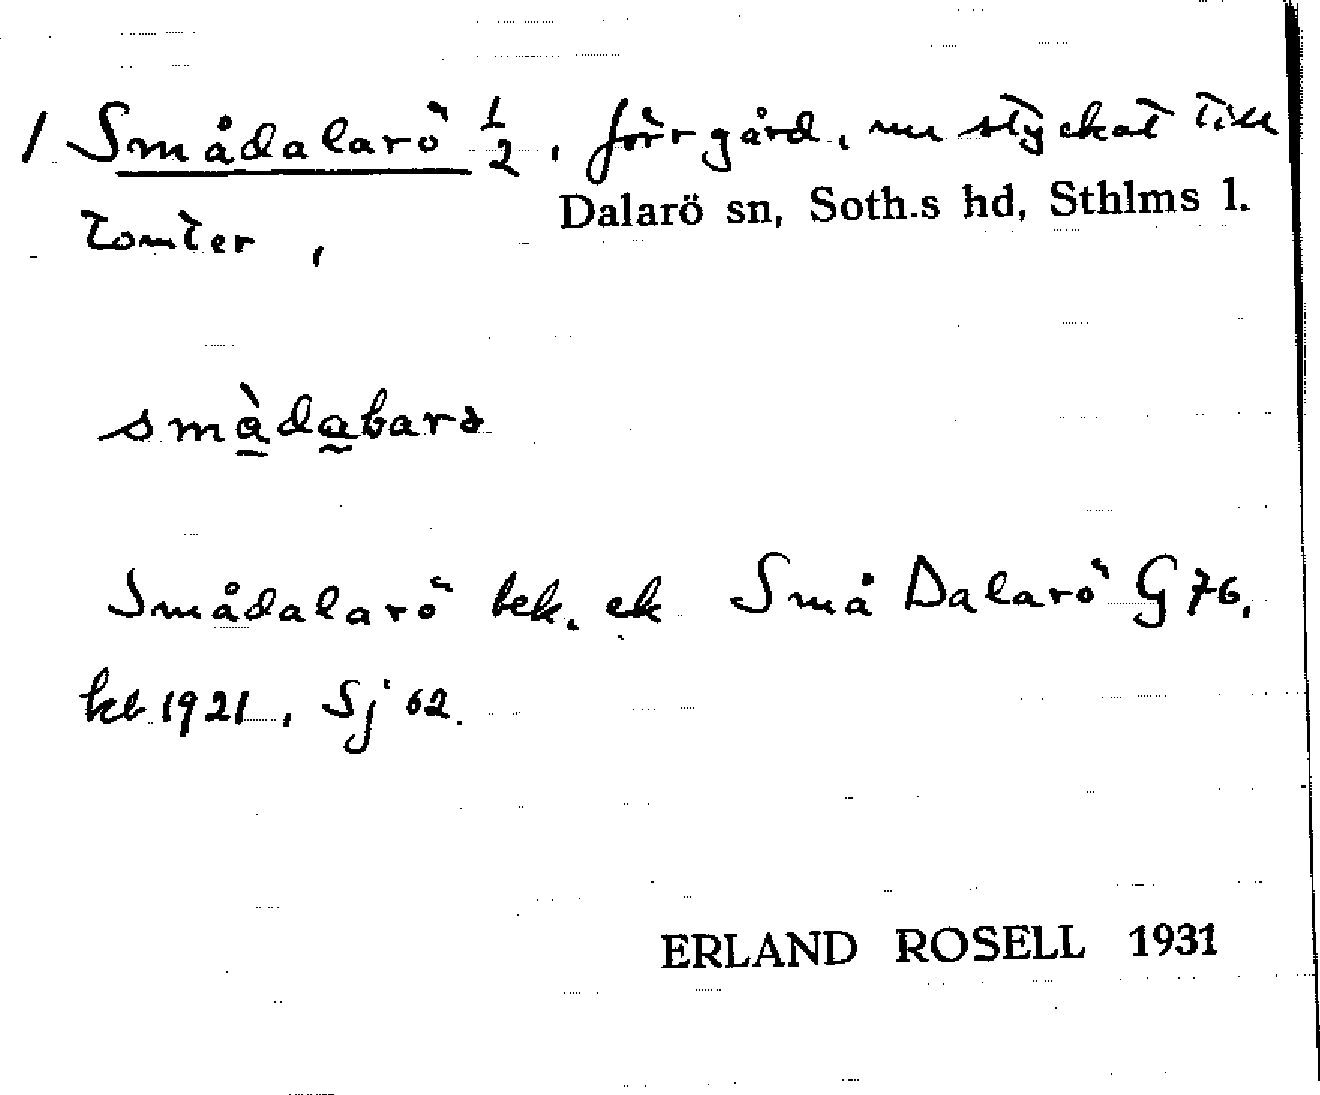 / Smådalarö ½, förr gård, nu styckat till
Dalarö sn, Soth.s hd, Sthlms l.
tomter,
Smådalarö bek. ek Små Dalarö G 76,
kb 1921, Sj 62.
ERLAND ROSELL 1931